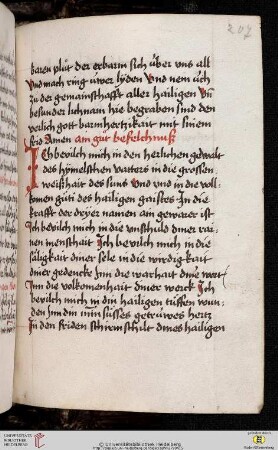 207
baren plůt der erbarm sich über uns all
Und mach ring ůwer lyden Und nem üch
zu der gemainschafft aller hailigen Uñ
besunder lichnam hie begraben sind den
verlich gott barmhertzikait mit sinem
frid Amen am gut befelchnuß
Ich bevilch mich in den herlichen gewalt
des hÿmelschen vatters in die grossen
weißhait des suns Und und in die voll-
komen güti des hailigen gaistes In die
krafft der dryer namen ain gewarer ist
Ich bevilch mich in die unschuld diner rai-
nen menschait Ich bevilch mich in die
säligkait diner sele in die wirdigkait
diner gedencke Inn die warhait dine wort
Inn die volkomenhait diner werck Ich
bevilch mich in din hailigen tüffen wun-
den Inn din min süsses getrüwes hertz
In den friden schirm schilt dines hailigen
UNIVERSITÄTS-
BIBLIOTHEK
HEIDELBERG
© Universitätsbibliothek Heidelberg